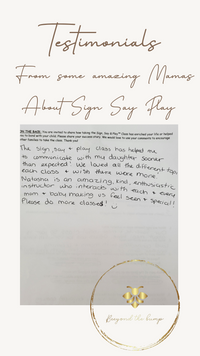 Testimonials
From some amazing Mamas
About Sign Say Play
The sign, say + play class has helped me
to communicate with my daughter sooner
than expected! We loved all the different toys
each class + wish there were more.
Natasha is an amazing, kind, enthusiastic
instructor who interacts with each + every
mom + baby making us feel seen + special!
Please do more classes!
Beyond the bump